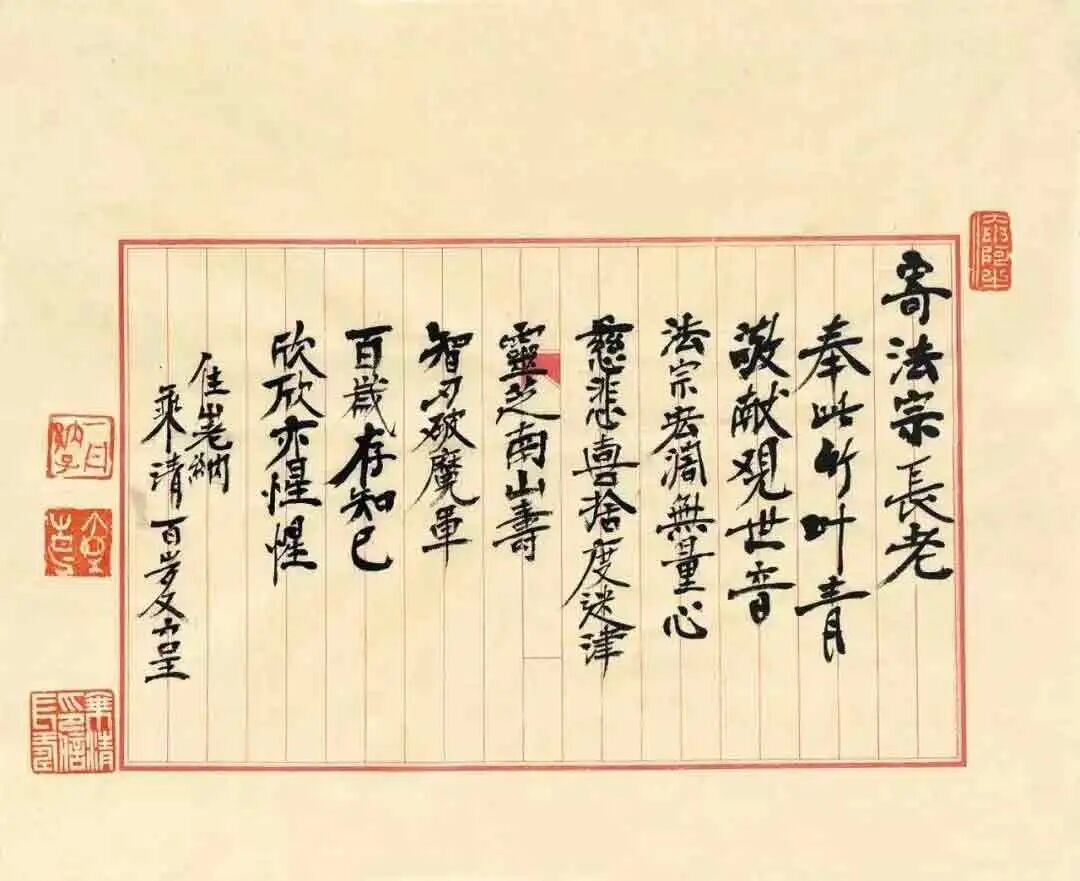 寄法宗長老
奉此竹叶青
敬献观世音
法宗宏阔無量心
慈悲喜捨度迷津
靈芝南山壽
智刃破魔軍
百歲存知己
欣欣亦惺惺
住山老衲
乘清百岁